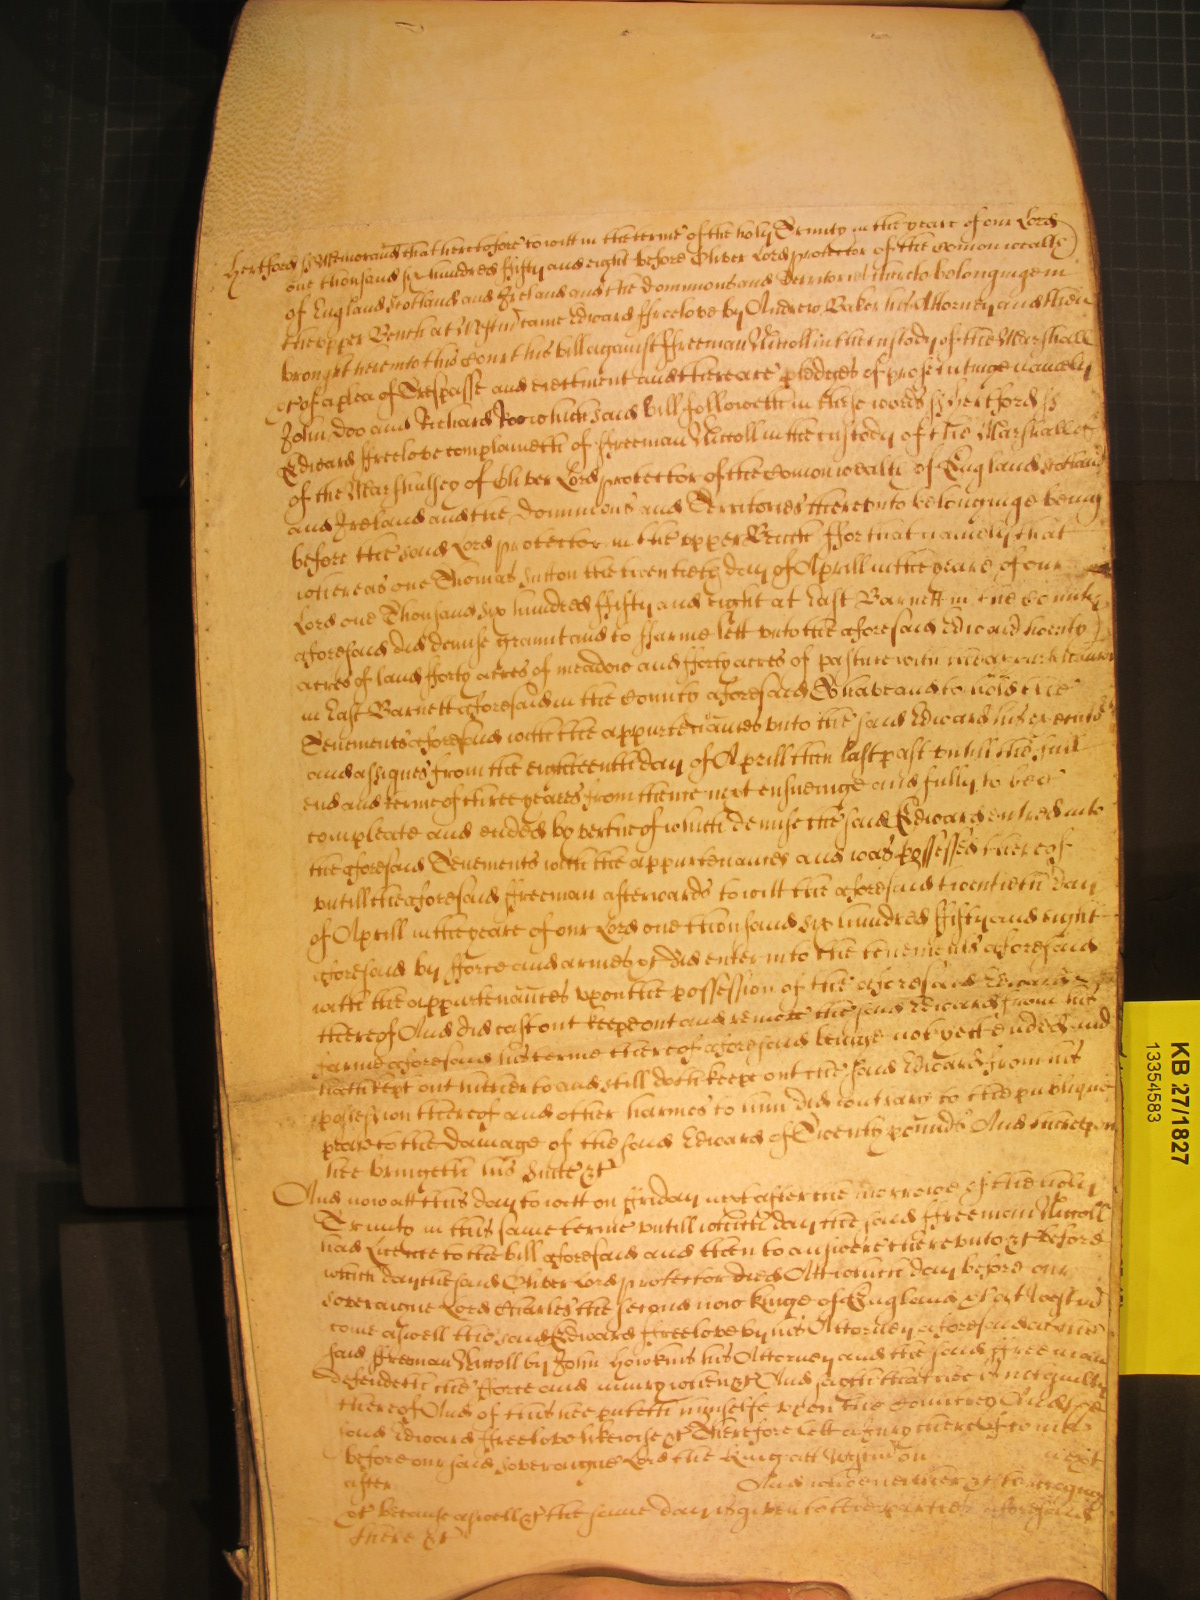 Hertford ss Memorand that heretofore to witt in the terme of the holy Trinity in the yeare of our Lord
one thousand six hundred fifty and eight before Oliver Lord protector of the Comonwealth
of England Scotland and Ireland and the dominions and Territories thereto belonginge in
the upper Bench at Westm came Edward ffreelove by Andrew Baker his Attorney and then
brought here into this Court his bill against ffreeman Nicoll in the custody of the Marshall
&c of a plea of Trespasse and eiectment and there are pledges of prosecutinge namely
John Doo and Richard Roo which said bill followeth in these words ss Hertford ss
Edward ffreelove complaineth of ffreeman Nicoll in the custody of the Marshall
of the Marshalsey of Oliver Lord protector of the Comonwealth of England Scotland
and Ireland and the Dominions and Territories thereunto belonginge being
before the said Lord protector in the upper Bench ffor that namely that
whereas one Thomas Sutton the twentieth day of Aprill in the yeare of our
Lord one Thousand six hundred fifty and eight at East Barnett in the County
aforesaid did demise graunt and to ffarme lett unto the aforesaid Edward twenty
acres of land fforty acres of meadow and fforty acres of pasture with the appurtenances
in East Barnett aforesaid in the County aforesaid To have and to hold the
Tenements aforesaid with the appurtenances unto the said Edward his
and assignes from the eighteenth day of Aprill then last past untill the full
end and terme of three yeares from thence next ensueinge and fully to bee
compleate and ended by vertue of which demise the said Edward entred into
the aforesaid Tenements with the appurtenances and was possessed thereof
untill the aforesaid ffreeman afterwards to witt the aforesaid twentieth day
of Aprill in the yeare of our Lord one thousand six hundred fifty and eight
aforesaid by fforce and armes &c did enter into the tenements aforesaid
with the appurtenances upon the possession of the aforesaid Edward
thereof And did cast out keepe out and remove the said Edward from his
farme aforesaid his terme thereof aforesaid beinge not yett ended and
hath kept out hitherto and still doth keepe out the said Edward from his
possession thereof and other harmes to him did contrary to the publique
peace to the damage of the said Edward of Twenty pounds And thereupon
hee bringeth his suite &c
And now att this day to witt on ffriday next after the morrowe of the holy
Trinity in this same terme untill which day the said ffreeman Nicoll
had Licence to the bill aforesaid and then to answere thereunto &c before
which day the said Oliver Lord protector died Att which day before our
Soveraigne Lord Charles the second now Kinge of England &c at Westm
come aswell the said Edward ffreelove by his Attorney aforesaid as the
said ffreeman Nicoll by John Howkins his Attorney and the said ffreeman
defendeth the fforce and iniury when &c And saith that hee is not guilty
thereof And of this hee putteth himselfe upon the Countrey And the
said Edward ffreelove likewise &c Therefore lett a Jury thereof come
before our said Soveraigne Lord the King att Westm on next
after And who neither &c to recognize
&c because aswell &c the same day is given to the parties aforesaid
there &c
KB 27/1827
13354583